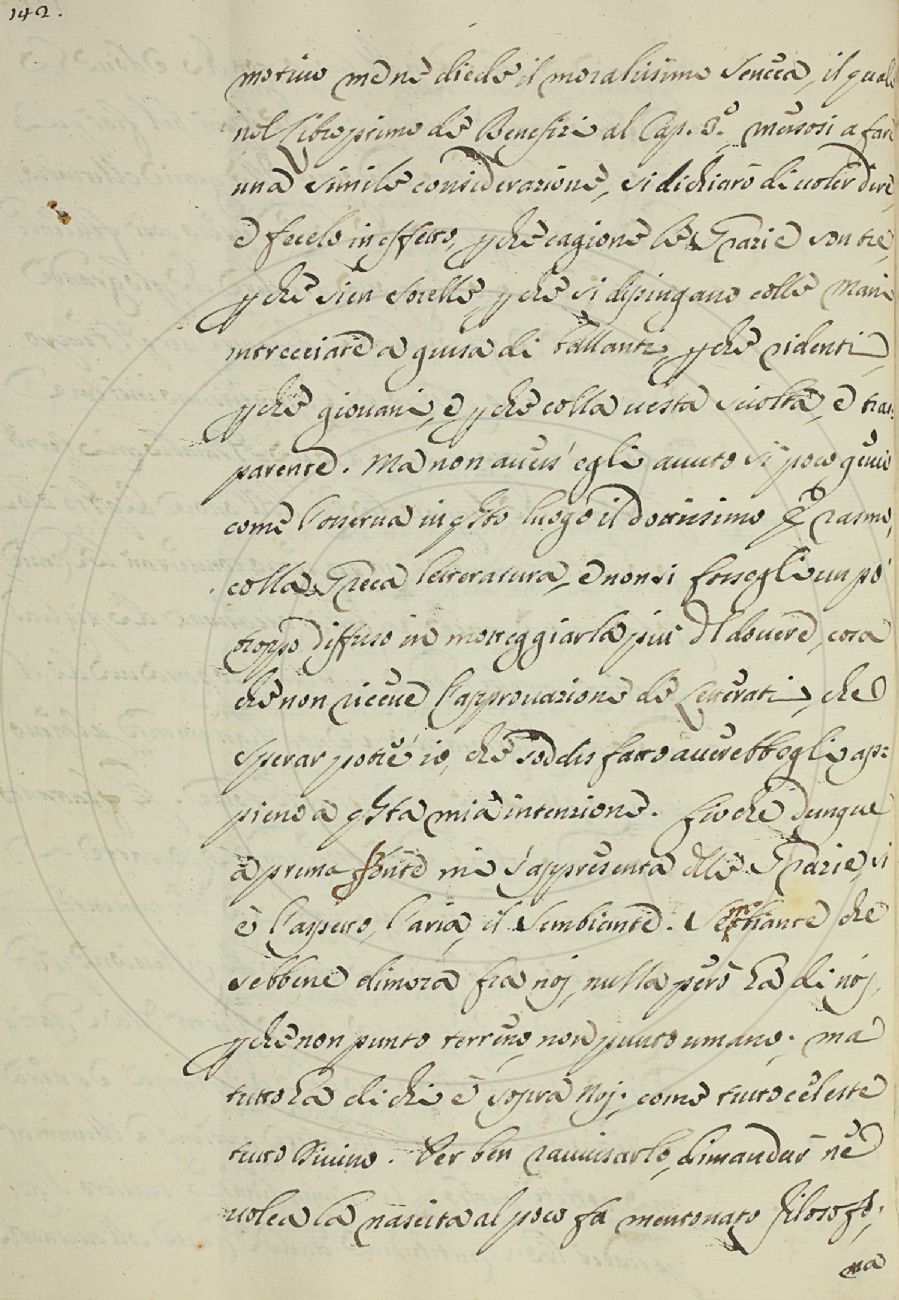 142.
motivo me ne diede il moralissimo Seneca, il quale
nel Libro primo de Benefizi al Cap. 3.º, messosi a fare
una simile considerazione, si dichiarò di voler dire,
e fecelo in effetto, pche cagione le Grazie son tre,
pche sien sorelle, pche si dipingano colle mani
intrecciate a guisa di ballanti, pche ridenti,
pche giovani, e pche colla vesta sciolta, e tras:
parente. Ma non avess' egli avuto sì poco genio
come l'osserva in qsto luogo il dottissimo Erasmo,
colla Greca letteratura, e non si foss egli un pò
troppo diffuso in motteggiarla più dl dovere, cosa
che non riceve l'approvazione de Letterati, che
sperar potre' io, che soddisfatto averebb egli ap:
pieno a qsta mia intenzione. Ciò che dunque
a prima fronte mi s'appresenta dlle Grazie, si
è l'aspetto, l'aria, il Sembiante. Sembiante che
sebbene dimora fra noj, nulla però ha di noj,
pche non punto terreno, non punto umano; ma
tutto ha di chi è sopra noj; come tutto celeste
tutto Divino. Per ben ravvisarlo, dimandar nè
volea la nascita al poco fa mentovato filosofo;
ma